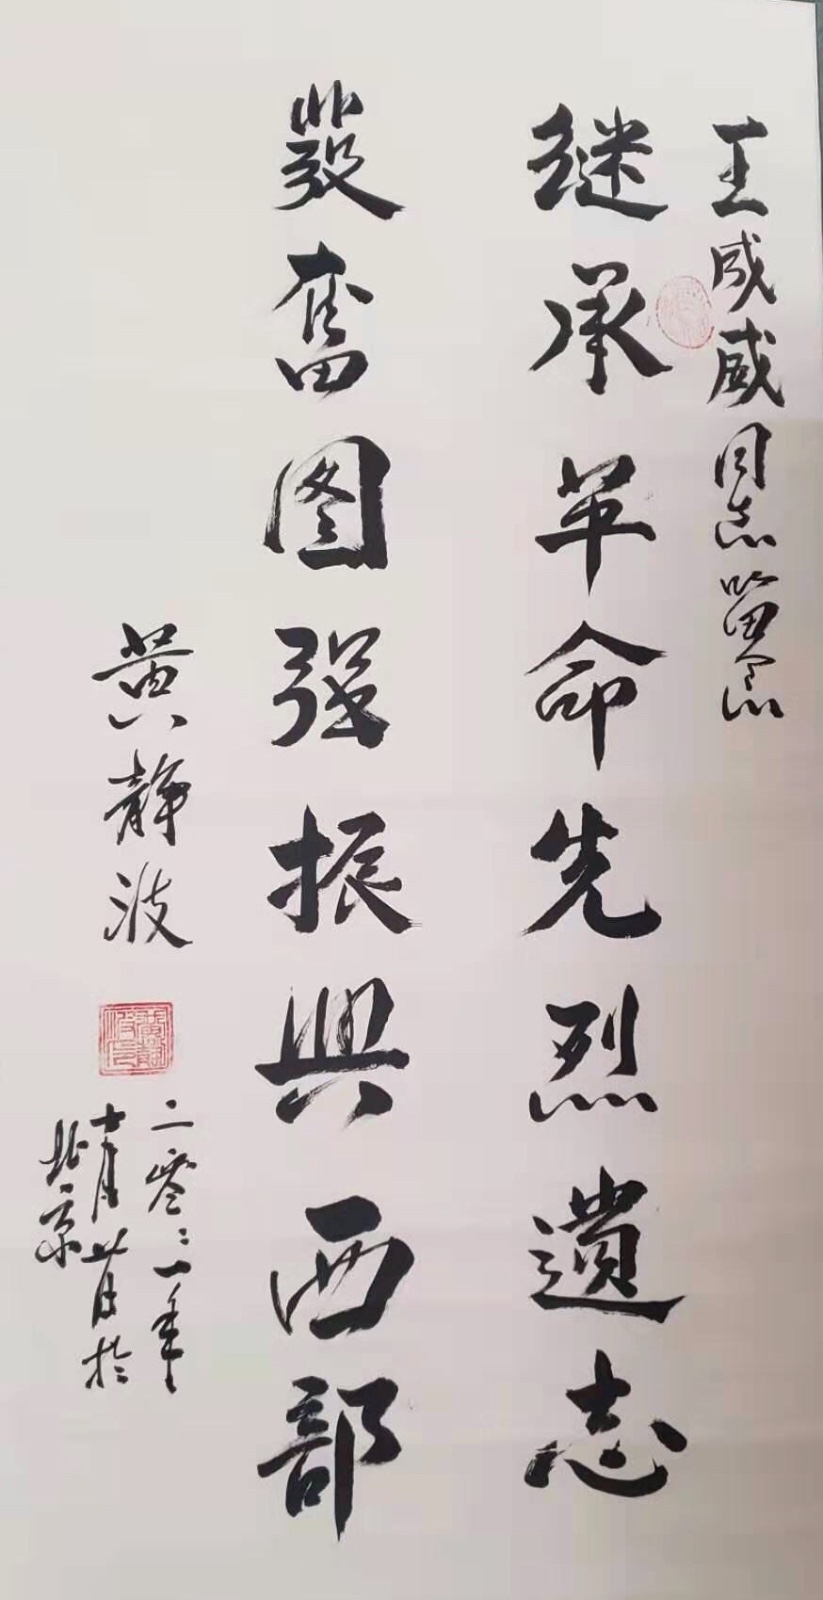 王成威同志留念
继承革命先烈遺志
發奮图强振興西部
黄静波
二零零一年
十月廿日於
北京